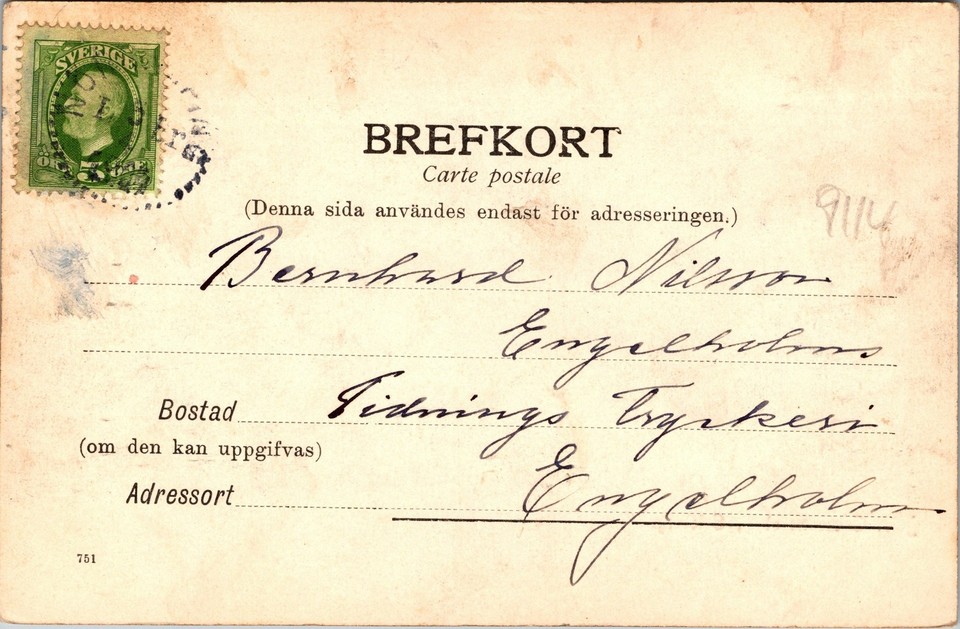 SVERIGE
5 ÖRE
BREFKORT
Carte postale
(Denna sida användes endast för adresseringen.)
9114
Bernhard Nilsson
Engelholms
Bostad Tidnings Tryckeri
(om den kan uppgifvas)
Adressort Engelholm
751